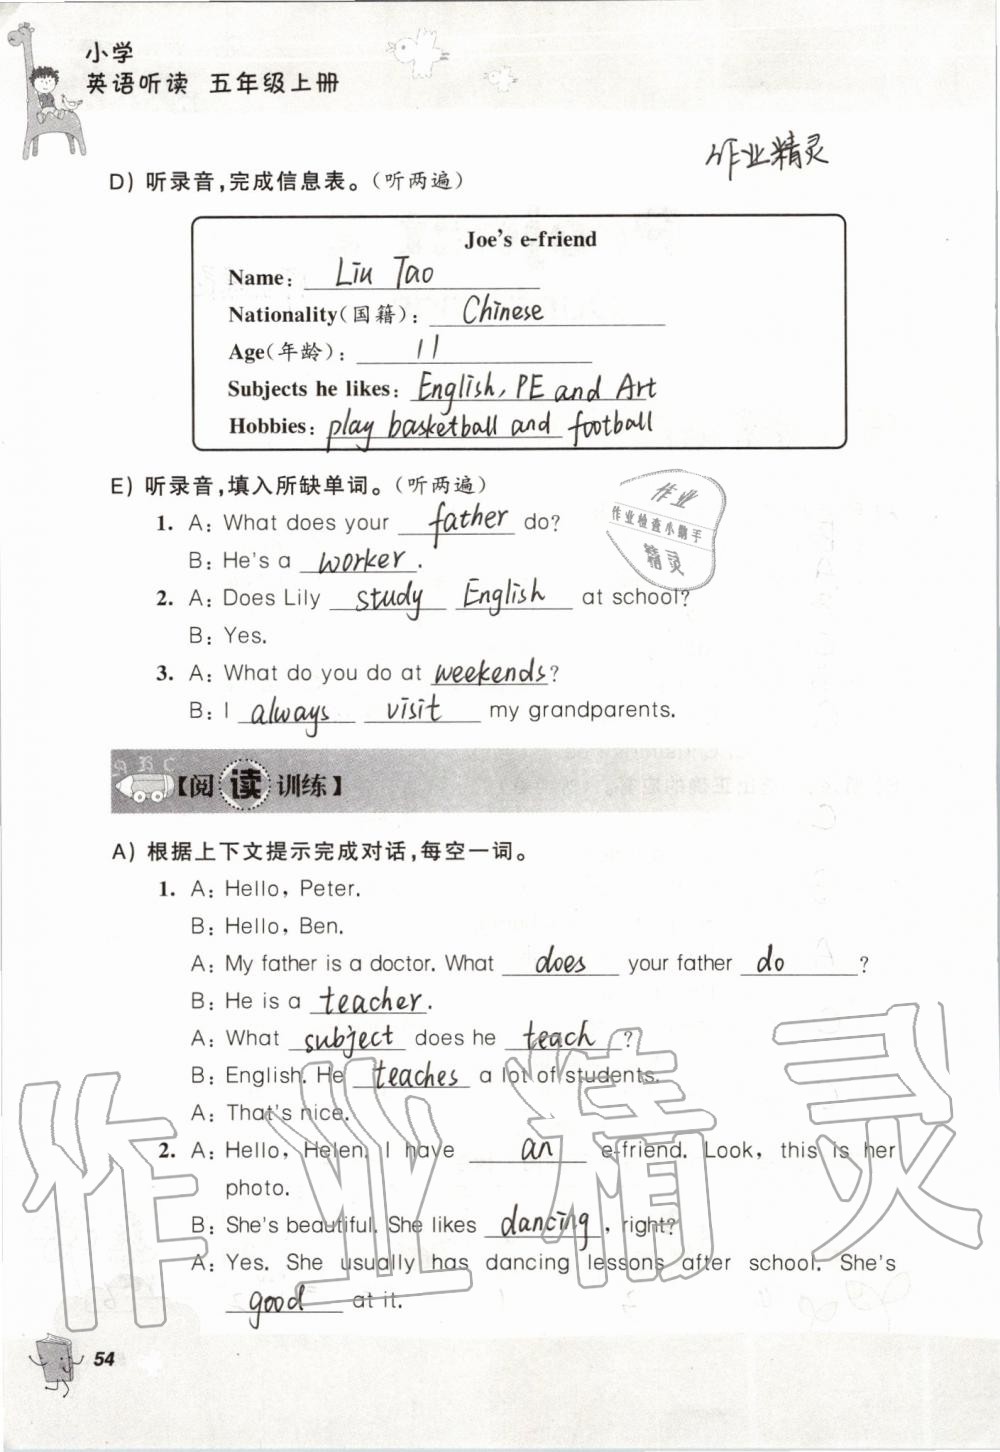 小学
英语听读 五年级上册
作业精灵
D) 听录音,完成信息表。(听两遍)
Joe's e-friend
Name: Liu Tao
Nationality(国籍): Chinese
Age(年龄): 11
Subjects he likes: English, PE and Art
Hobbies: play basketball and football
E) 听录音,填入所缺单词。(听两遍)
作业
作业检查小帮手
精灵
1. A: What does your father do?
B: He's a worker.
2. A: Does Lily study English at school?
B: Yes.
3. A: What do you do at weekends?
B: I always visit my grandparents.
【阅读训练】
A) 根据上下文提示完成对话,每空一词。
1. A: Hello, Peter.
B: Hello, Ben.
A: My father is a doctor. What does your father do?
B: He is a teacher.
A: What subject does he teach?
B: English. He teaches a lot of students.
A: That's nice.
2. A: Hello, Helen. I have an e-friend. Look, this is her
photo.
B: She's beautiful. She likes dancing, right?
A: Yes. She usually has dancing lessons after school. She's
good at it.
作业精灵
54